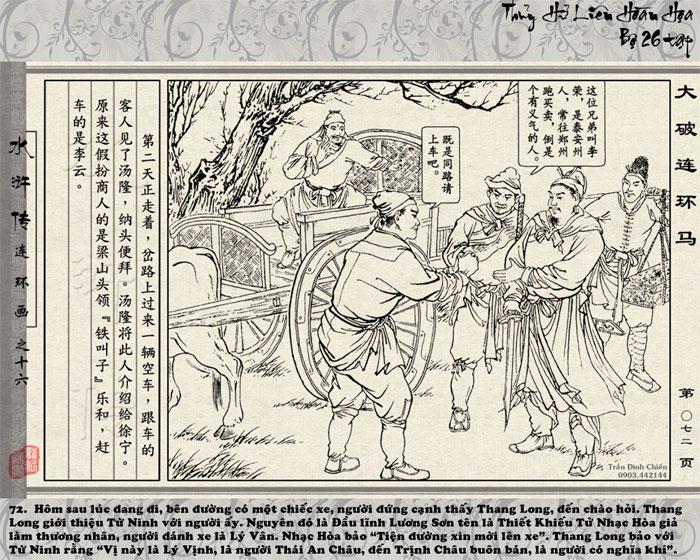 Thủy Hử Liên Hoàn Họa
Bộ 26 tập
大破连环马
第〇七二页
这位兄弟叫李
荣，是泰安州
人，常往郑州
跑买卖，倒是
个有义气的人。
既是同路请
上车吧。
第二天正走着，岔路上过来一辆空车，跟车的
客人见了汤隆，纳头便拜。汤隆将此人介绍给徐宁。
原来这假扮商人的是梁山头领『铁叫子』乐和，赶
车的是李云。
水浒传连环画之十六
Trần Đình Chiến
0903.442144
72. Hôm sau lúc đang đi, bên đường có một chiếc xe, người đứng cạnh thấy Thang Long, đến chào hỏi. Thang
Long giới thiệu Từ Ninh với người ấy. Nguyên đó là Đầu lĩnh Lương Sơn tên là Thiết Khiếu Tử Nhạc Hòa giả
làm thương nhân, người đánh xe là Lý Vân. Nhạc Hòa bảo “Tiện đường xin mời lên xe”. Thang Long bảo với
Từ Ninh rằng “Vị này là Lý Vịnh, là người Thái An Châu, đến Trịnh Châu buôn bán, là người có nghĩa khí”.